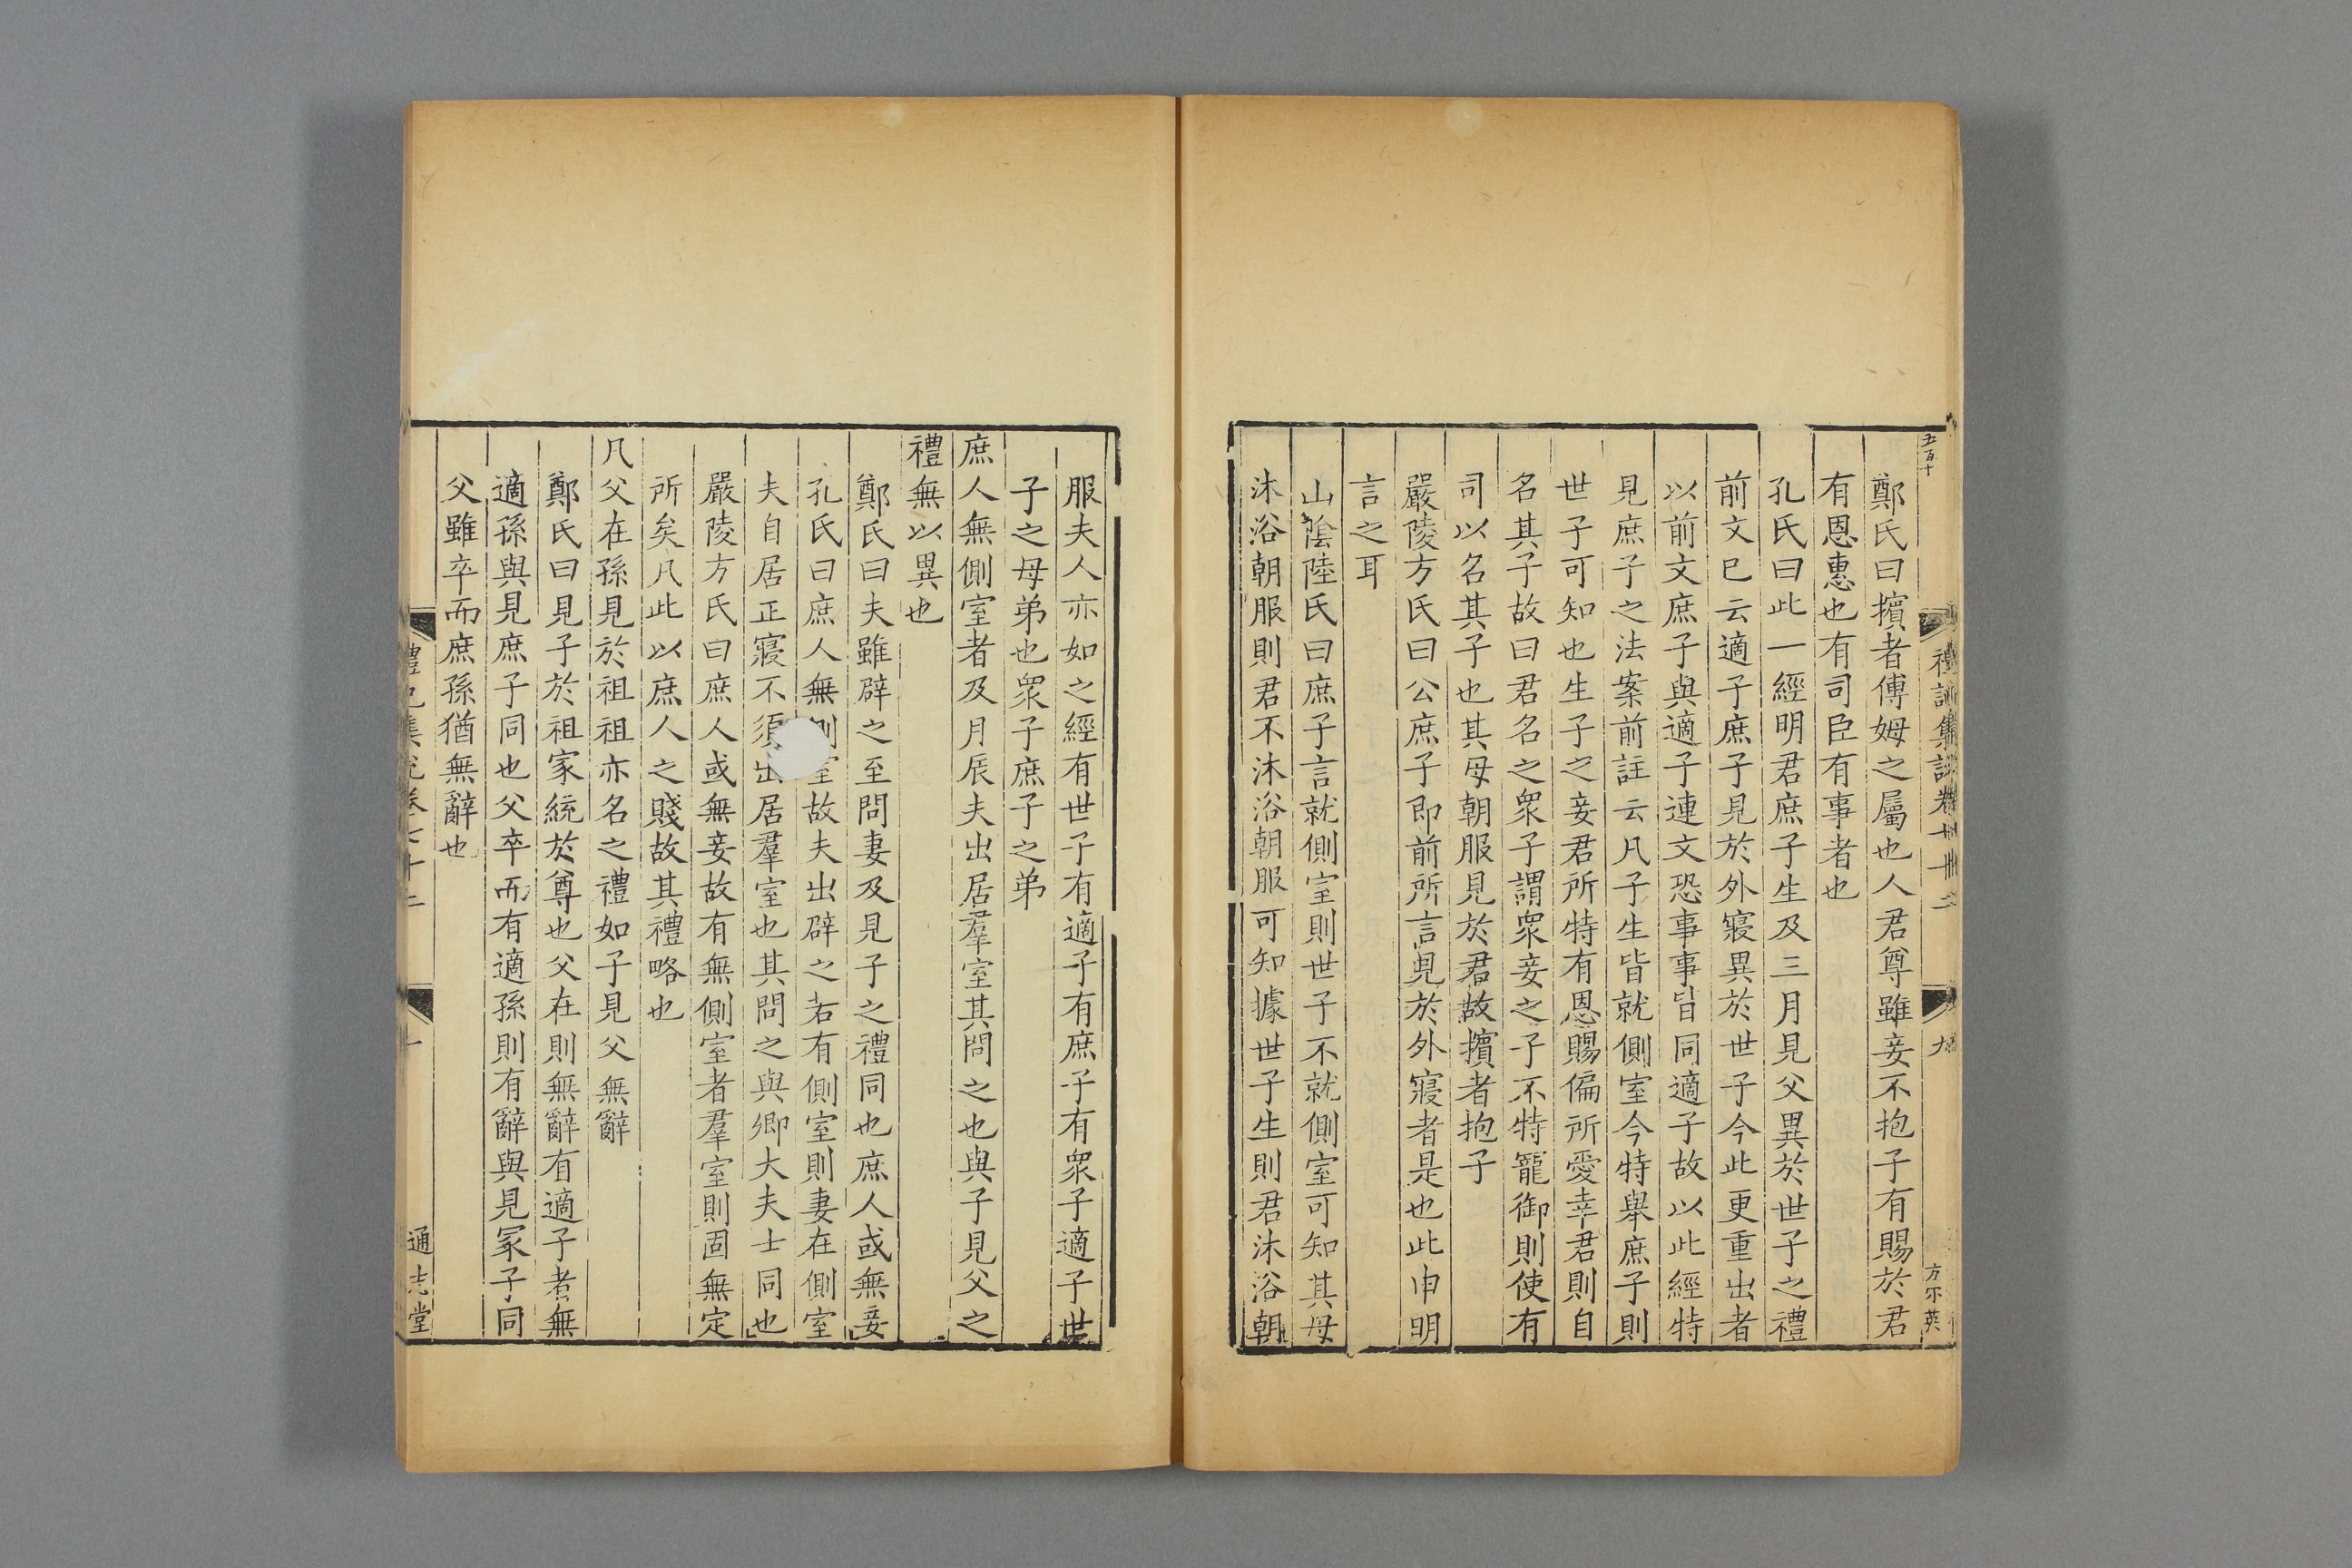 五百十
禮記集說卷
九
方不英
鄭氏曰擯者傅姆之屬也人君尊雖妾不抱子有賜於君
有恩惠也有司臣有事者也
孔氏曰此一經明君庶子生及三月見父異於世子之禮
前文已云適子庶子見於外寢異於世子今此更重出者
以前文庶子與適子連文恐事事皆同適子故以此經特
見庶子之法案前註云凡子生皆就側室今特舉庶子則
世子可知也生子之妾君所特有恩賜偏所愛幸君則自
名其子故曰君名之衆子謂衆妾之子不特寵御則使有
司以名其子也其母朝服見於君故擯者抱子
嚴陵方氏曰公庶子即前所言見於外寢者是也此申明
言之耳
山陰陸氏曰庶子言就側室則世子不就側室可知其母
沐浴朝服則君不沐浴朝服可知據世子生則君沐浴朝
服夫人亦如之經有世子有適子有庶子有衆子適子世
子之母弟也衆子庶子之弟
庶人無側室者及月辰夫出居羣室其問之也與子見父之
禮無以異也
鄭氏曰夫雖辟之至問妻及見子之禮同也庶人或無妾
孔氏曰庶人無側室故夫出辟之若有側室則妻在側室
夫自居正寢不須出居羣室也其問之與卿大夫士同也
嚴陵方氏曰庶人或無妾故有無側室者羣室則固無定
所矣凡此以庶人之賤故其禮略也
凡父在孫見於祖祖亦名之禮如子見父無辭
鄭氏曰見子於祖家統於尊也父在則無辭有適子者無
適孫與見庶子同也父卒而有適孫則有辭與見冢子同
父雖卒而庶孫猶無辭也
禮記集說卷七十二
通志堂